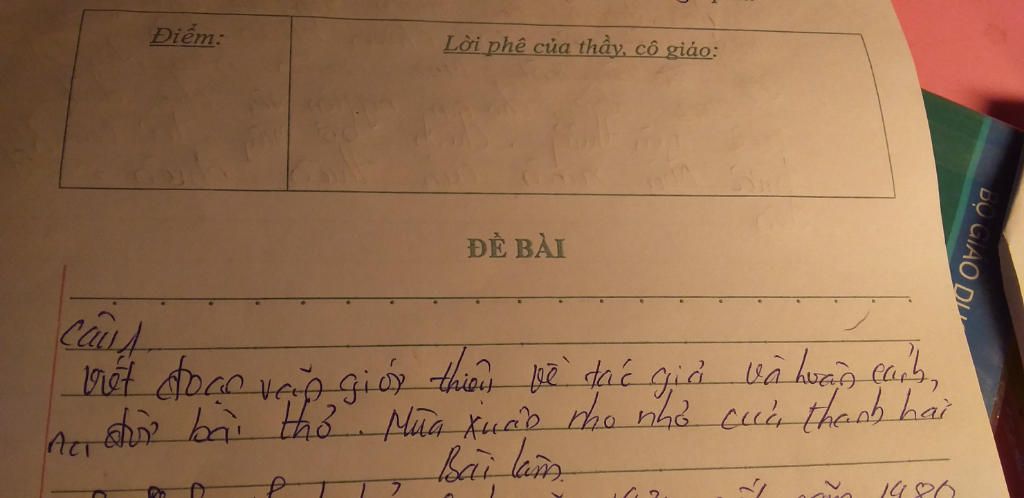 Điểm:
Lời phê của thầy, cô giáo:
BỘ GIÁO DỤ
ĐỀ BÀI
Câu 1
Viết đoạn văn giới thiệu về tác giả và hoàn cảnh,
ra đời bài thơ. Mùa xuân nho nhỏ của thanh hải
Bài làm.
1980